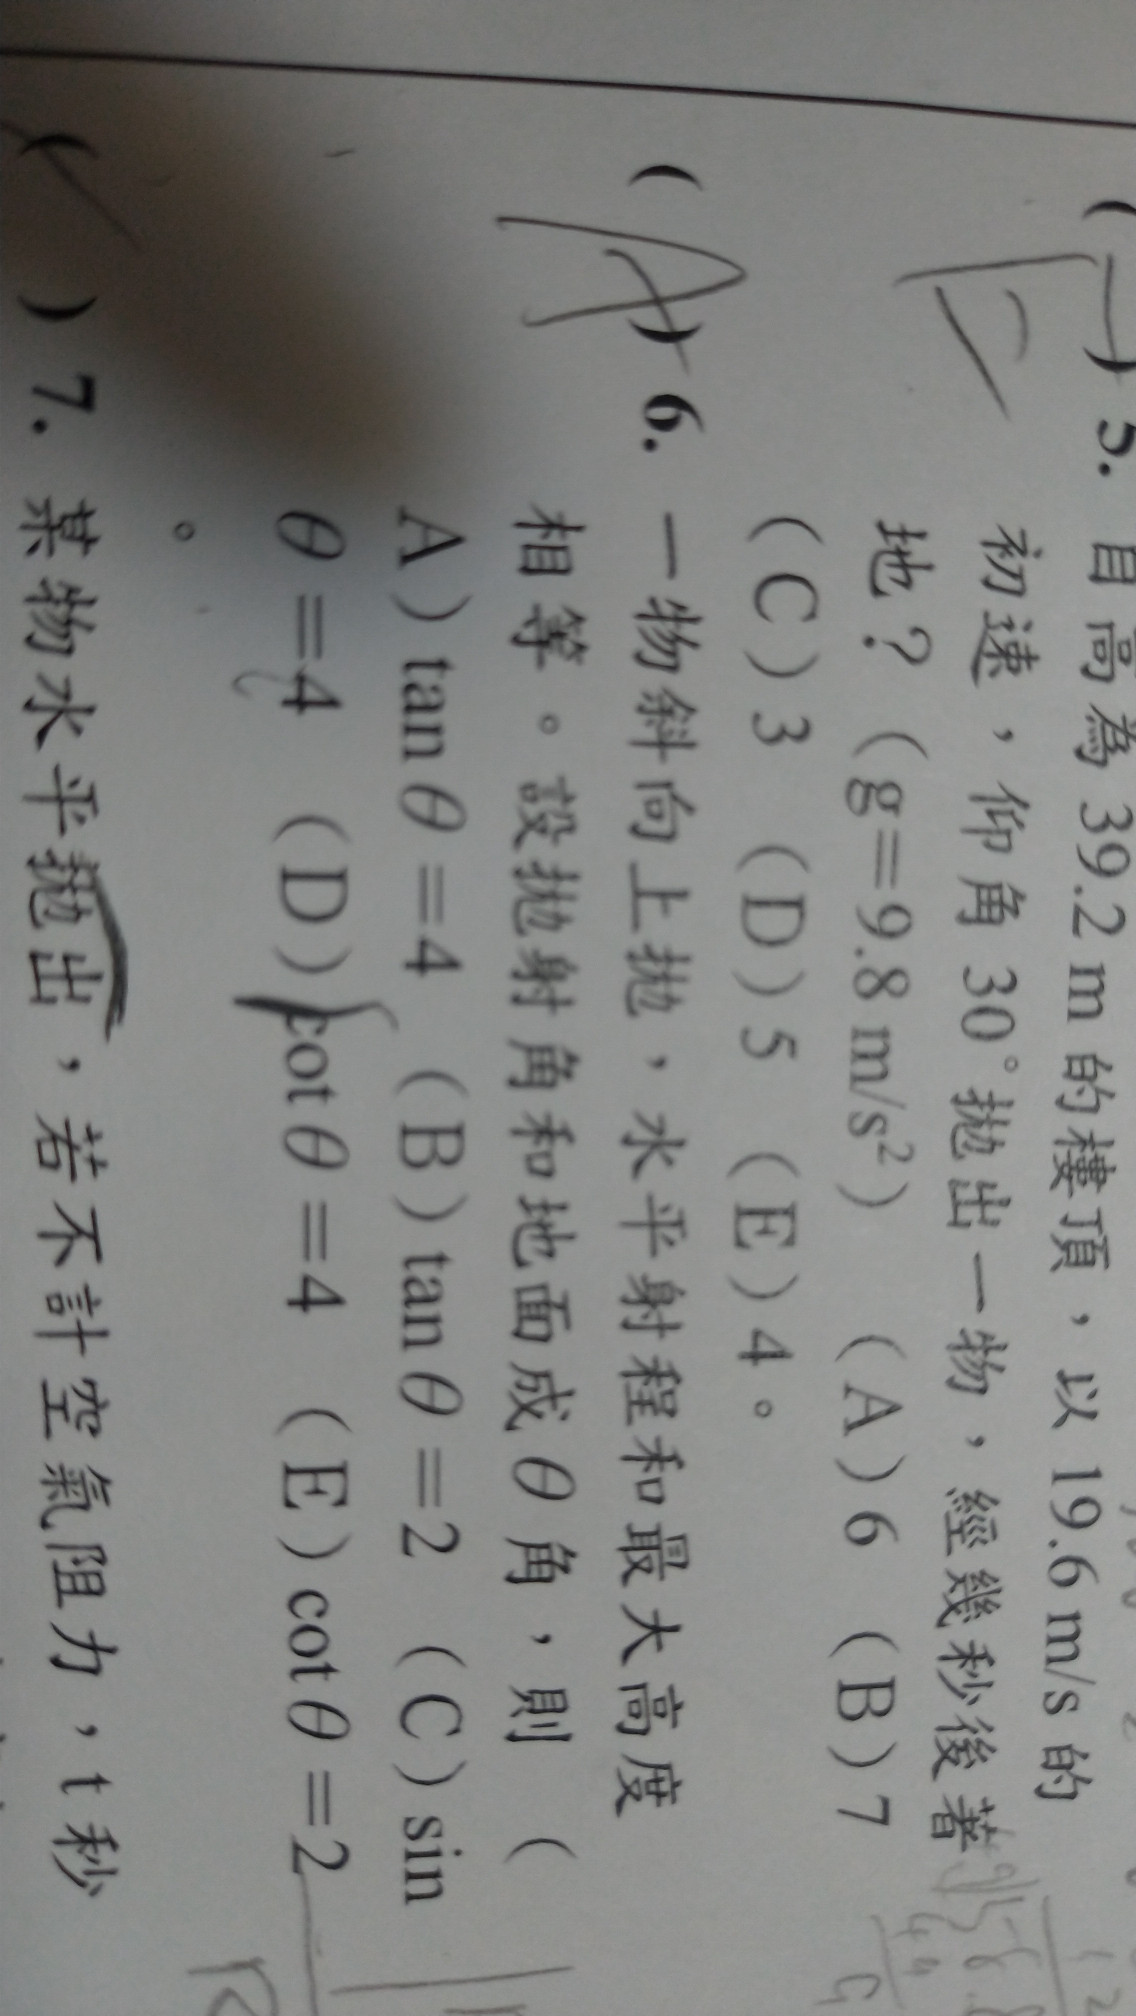 ( ) 5. 自高為 39.2 m 的樓頂，以 19.6 m/s 的
初速，仰角 30°拋出一物，經幾秒後著
地？（g＝9.8 m/s²） （A）6 （B）7
（C）3 （D）5 （E）4。
( A ) 6. 一物斜向上拋，水平射程和最大高度
相等。設拋射角和地面成 θ 角，則 （
A）tan θ ＝4 （B）tan θ ＝2 （C）sin
θ ＝4 （D）cot θ ＝4 （E）cot θ ＝2
。
( ) 7. 某物水平拋出，若不計空氣阻力，t 秒